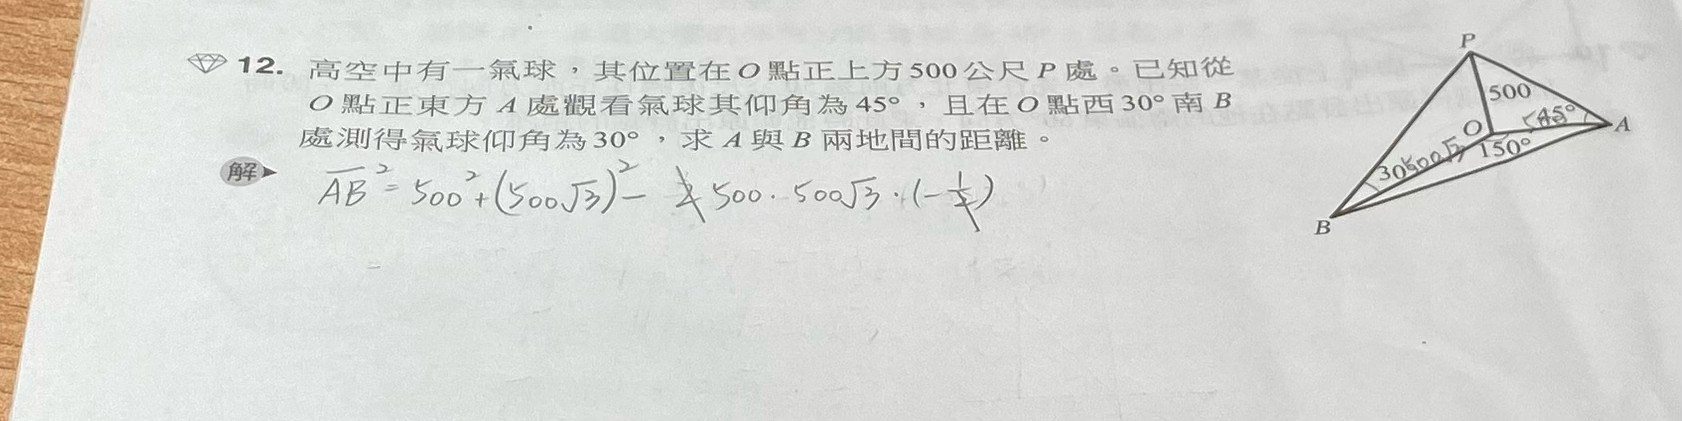 12. 高空中有一氣球，其位置在O點正上方500公尺P處。已知從
O點正東方A處觀看氣球其仰角為45°，且在O點西30°南B
處測得氣球仰角為30°，求A與B兩地間的距離。
解
AB² = 500² + (500√3)² - 2 500 · 500√3 · (-1/2)
P
500
45°
A
O
500√3
150°
30
B